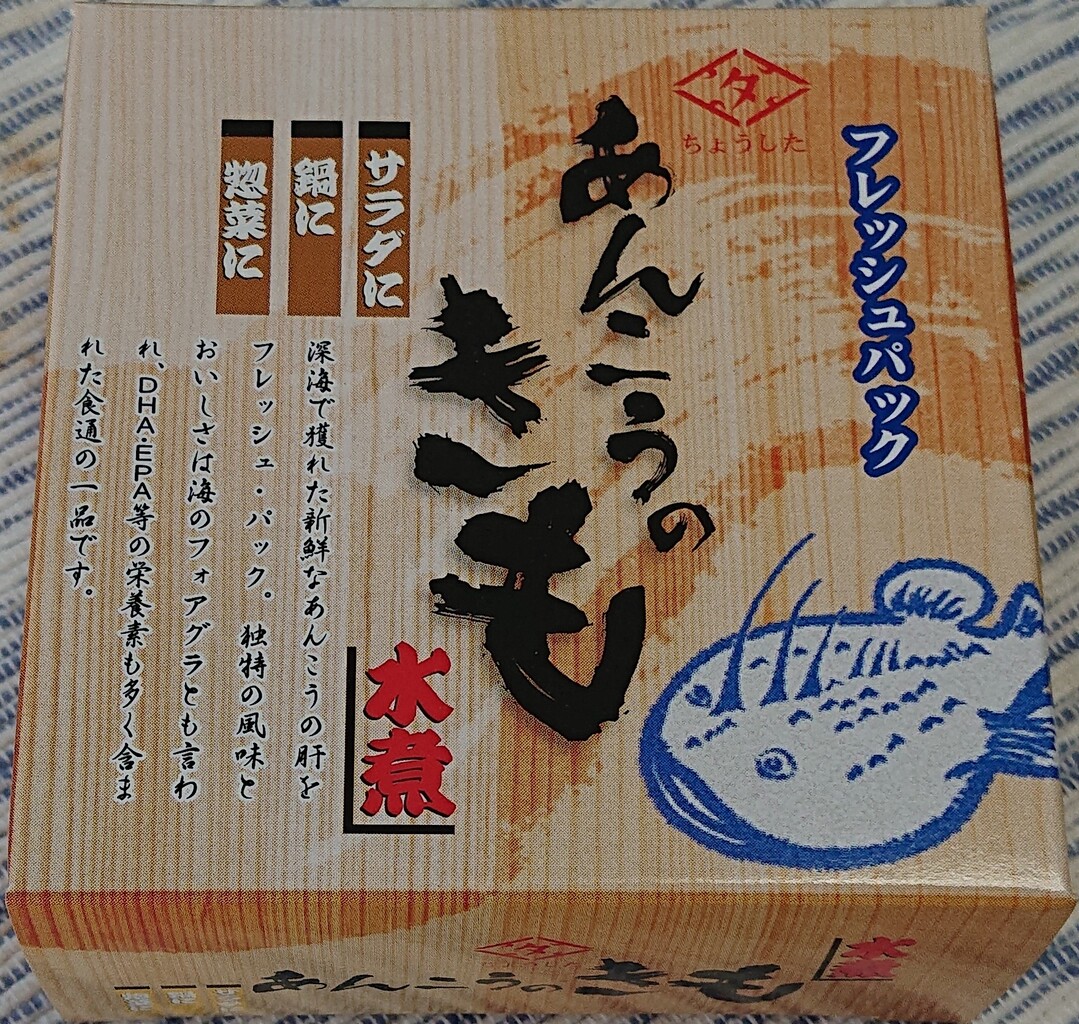 フレッシュパック
タ
ちょうした
あんこうの
きも
水煮
サラダに
鍋に
惣菜に
深海で獲れた新鮮なあんこうの肝を
フレッシュ・パック。独特の風味と
おいしさは海のフォアグラとも言わ
れ、DHA・EPA等の栄養素も多く含ま
れた食通の一品です。
タ
ちょうした
あんこうのきも
水煮
サラダに
鍋に
惣菜に